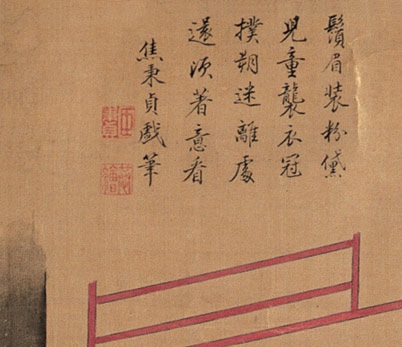 鬚眉裝粉黛
兒童襲衣冠
撲朔迷離處
還須著意看
焦秉貞戲筆